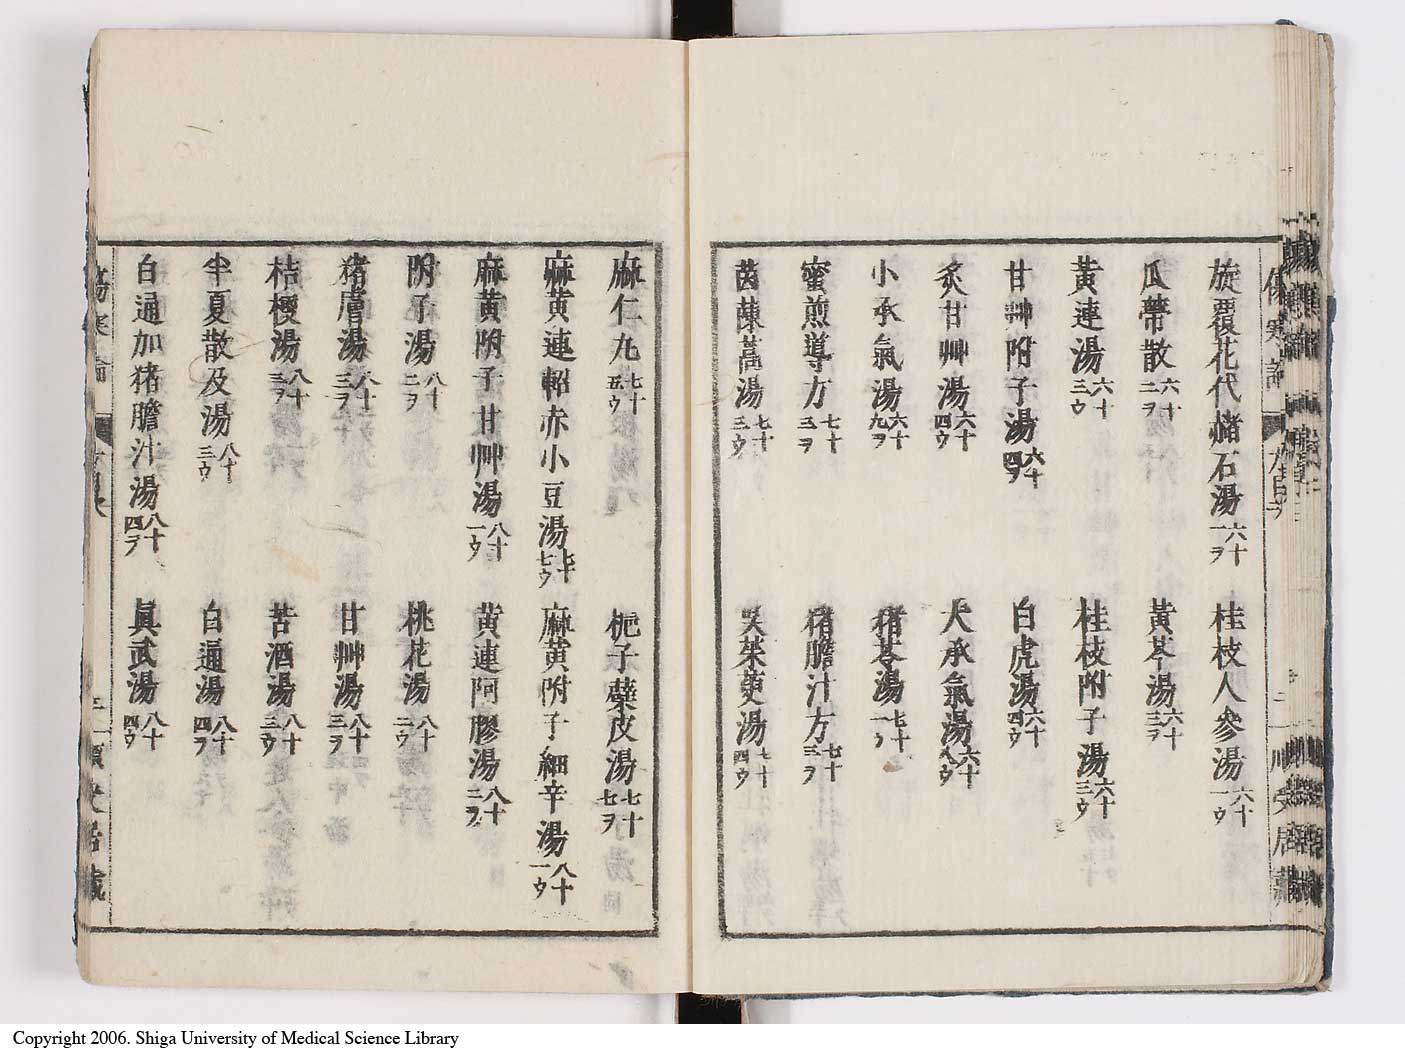 旋覆花代赭石湯 六十一ヲ
桂枝人參湯 六十一ウ
瓜蒂散 六十二ヲ
黃芩湯 六十三ヲ
黃連湯 六十三ウ
桂枝附子湯 六十三ウ
甘艸附子湯 六十四ヲ
白虎湯 六十四ウ
炙甘艸湯 六十四ウ
大承氣湯 六十八ウ
小承氣湯 六十九ヲ
猪苓湯 七十一ウ
蜜煎導方 七十三ヲ
猪膽汁方 七十三ヲ
茵蔯蒿湯 七十三ウ
吳茱萸湯 七十四ウ
麻仁丸 七十五ウ
梔子蘗皮湯 七十七ヲ
麻黃連軺赤小豆湯 七十七ウ
麻黃附子細辛湯 八十一ウ
麻黃附子甘艸湯 八十一ウ
黃連阿膠湯 八十二ヲ
附子湯 八十二ヲ
桃花湯 八十二ウ
猪膚湯 八十三ヲ
甘艸湯 八十三ヲ
桔梗湯 八十三ヲ
苦酒湯 八十三ウ
半夏散及湯 八十三ウ
白通湯 八十四ヲ
白通加猪膽汁湯 八十四ヲ
眞武湯 八十四ウ
Copyright 2006. Shiga University of Medical Science Library